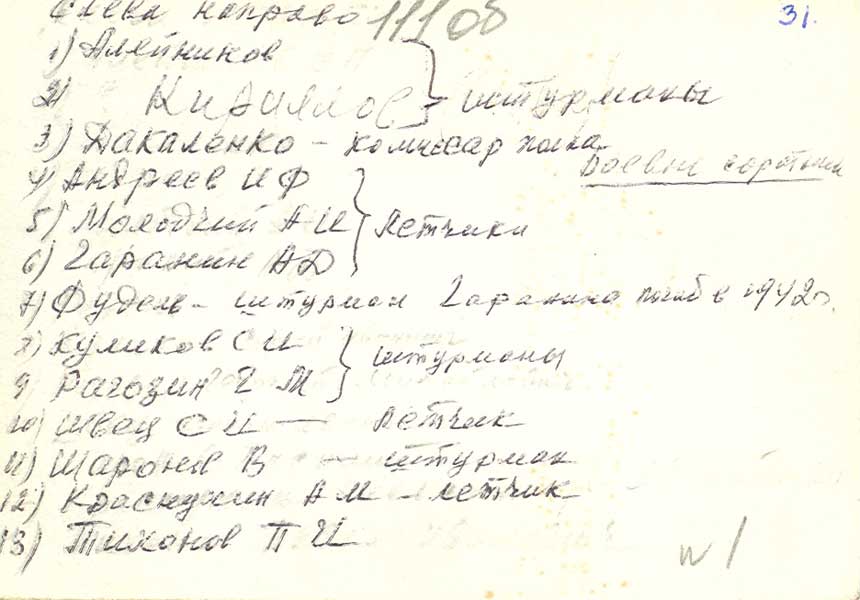 Слева направо 11108 31.
1) Алейников
2) Кириллов } штурманы
3) Дакаленко - комиссар полка
Боевые соратники
4) Андреев И Ф
5) Молодчий А И } Летчики
6) Гаранин А Д
7) Фудель - штурман Гаранина погиб в 1942 г.
8) Куликов С И
9) Рагозин Г М } штурманы
10) Швец С И — Летчик
11) Шаронов В — штурман
12) Краснухин А М - летчик
13) Тихонов П И
N 1